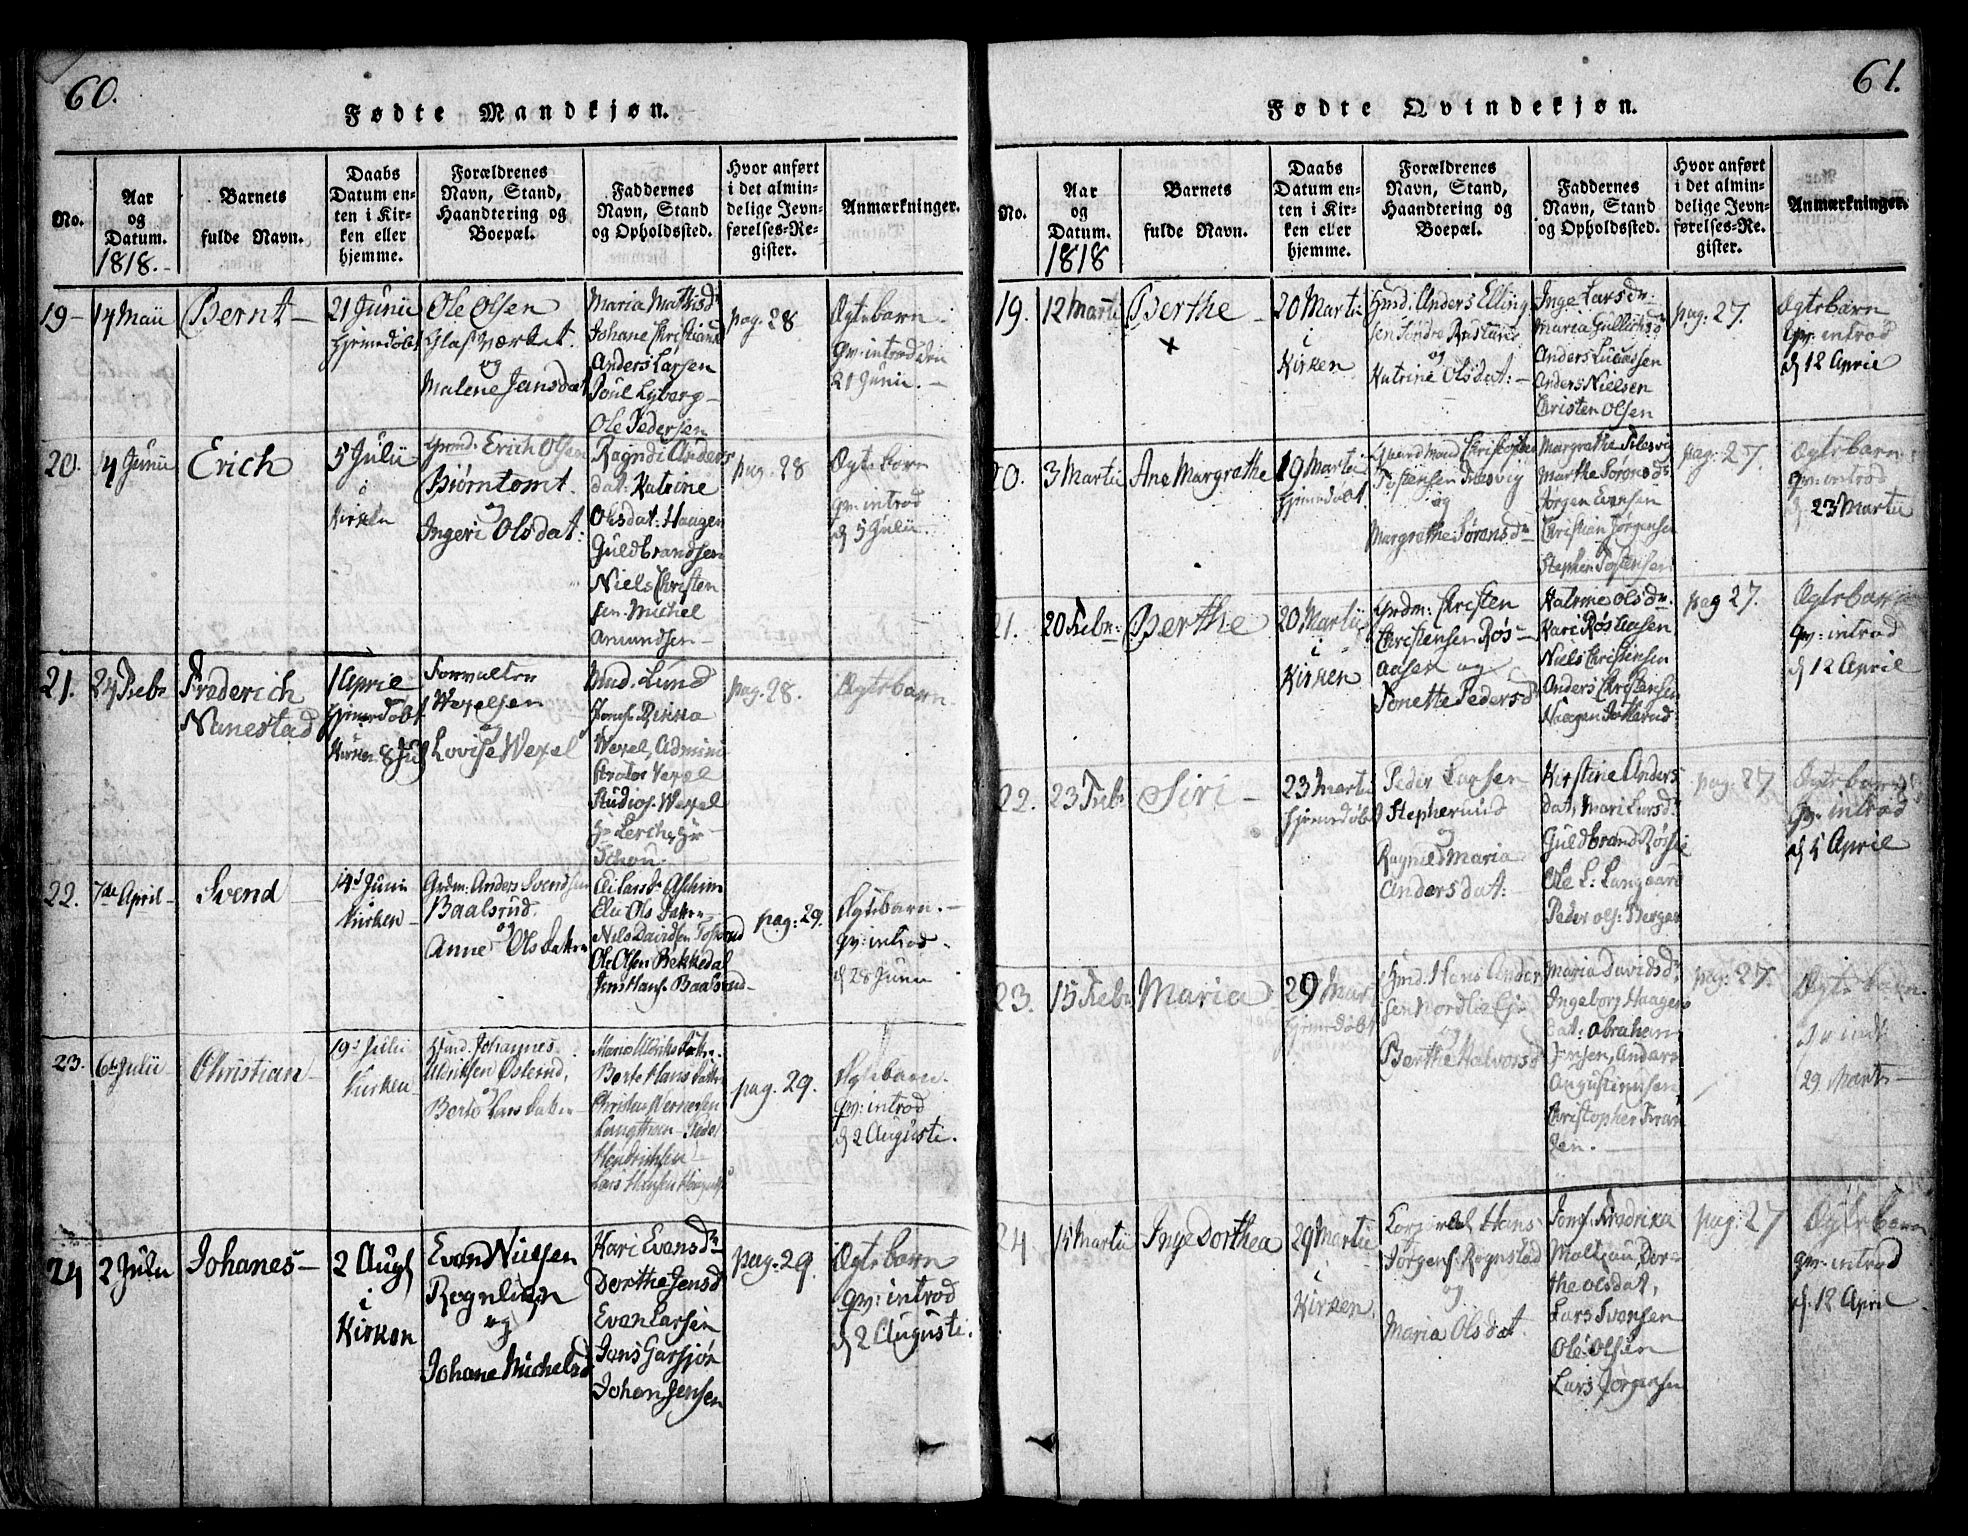 60.
Fødte Mandkjøn.
No.
Aar
og
Datum.
1818.
Barnets
fulde Navn.
Daabs
Datum en-
ten i Kir-
ken eller
hjemme.
Forældrenes
Navn, Stand,
Haandtering og
Boepæl.
Faddernes
Navn, Stand
og Opholdssted.
Hvor anført
i det almin-
delige Jevn-
førelses-Re-
gister.
Anmærkninger.
19
14 Maii
Bernt
21 Junii
Hjemedøbt
Ole Olsen
Glasværket.
og
Malene Jensdat
Maria Mathisd
Johane Christians
Anders Larsen
Poul Lyborg
Ole Pedersen
pag. 28
Ægtebarn
qv: introd den
21 Junii.
20.
4 Junii
Erich
5 Julii
i
Kirken
Grmd: Erich Olsen
Biørntomt.
og
Ingeri Olsdat:
Ragndi Anders
dat: Katrine
Olsdat: Haagen
Guldbrandsen
Niels Christen
sen. Michel
Amundsen
pag. 28
Ægtebarn
qv: introd
d 5 Julii
21.
24 Febr
Frederich
Nanestad
1 April
Hjemedøbt
Kirken 8 Jul
Forvalter
Wexelsen
og
Lovise Wexel
Mad. Lund
Jomf. Rikka
Wexel, Admini
strator Wexel
Studios. Wexel
Hr Lerche, Hr
Schou.
pag. 28.
Ægtebarn
22.
7de April
Svend
14d Junii
Kirken
Grdm: Anders Svendsen
Baalsrud.
og
Anne Olsdatter
Eli Olsdatter
Nils Davidsen
Ole Olsen Bekkedal
Jens Hans. Baalsrud
pag: 29.
Ægtebarn.
qv: introd.
d 28 Junii
23.
6te Julii
Christian
19d Julii
Kirken
Hmd. Johannes
Ulriksen Østerud,
og
Berte Larsdatter
Maria Ulriksdatter
Berte Hansdatter
Hendrichsen
pag. 29.
Ægtebarn.
qv: introd
d 2 Augusti.
24
2 Julii
Johanes
2 Augs
i
Kirken
Evan Nielsen
Rognlien
og
Johane Michelsd
Kari Evansdr
Dorthe Jensd
Evan Larsen
Jens Garsjøe
Johan Jensen
pag: 29.
Ægtebarn
qv: introd
d 2 Augusti.
61.
Fødte Qvindekjøn.
No.
Aar
og
Datum.
1818
Barnets
fulde Navn.
Daabs
Datum en-
ten i Kir-
ken eller
hjemme.
Forældrenes
Navn, Stand,
Haandtering og
Boepæl.
Faddernes
Navn, Stand
og Opholdssted.
Hvor anført
i det almin-
delige Jevn-
førelses-Re-
gister.
Anmærkninger.
19.
12 Martii
Berthe
x
20 Martii
i
Kirken
Hmd: Anders Elling
sen Søndre
og
Katrine Olsdat:
Inge Larsdr:
Maria Gullichsdr
Anders Lucassen
Anders Nielsen
Christen Olsen
pag: 27.
Ægtebarn
qv: introd
d 12 April
20.
3 Martii
Ane Margrathe
19 Martii
Hjemedøbt
Gaardmand Christopher
Tostensen
og
Margrathe Sørensdr
Margrathe
Marthe Sørensdr
Jørgen Evensen
Christian Jørgensen
Stephen Tostensen
pag: 27.
Ægtebarn
qv: introd
d. 23 Martii
21.
20 Febr:
Berthe
20 Martii
i
Kirken
Grdm: Christen
Christensen Røs-
aasen og
Jonette Pedersd
Katrine Olsdr.
Kari Røsaasen
Niels Christensen
Anders Christensen
Haagen
pag 27.
Ægtebarn
qv: introd
d 12 April
22.
23 Febr
Siri
23 Martii
Hjemedøbt
Peder Larsen
Stephersrud
og
Ragnild Maria
Andersdat:
Kirstine Anders
dat, Mari Larsd
Guldbrand
Ole L: Langaard
Peder Ols: Berger
pag: 27
Ægtebarn
qv: introd
d 5 April
23.
15 Febr
Maria
29 Mart
Hjemedøbt
Hmd. Hans Ander
sen Nordlie Eje
og
Berthe Halvorsd
Maria Davidsdr
Ingeborg Haagens
dat: Abraham
Jensen, Anders
Augustinusen
Christopher Fran
sen.
pag: 27.
Ægtebarn.
introd
29 Martii
24
15 Martii
Inge Dorthea
29 Martii
i
Kirken.
Corporal Hans
Jørgens. Rognstad
og
Maria Olsdat.
Jomf. Fredrika
Maltzau, Dor-
the Olsdat,
Lars Svensen
Ole Olsen
Lars Jørgensen
pag: 27
Ægtebarn
qv: introd
d. 12 April